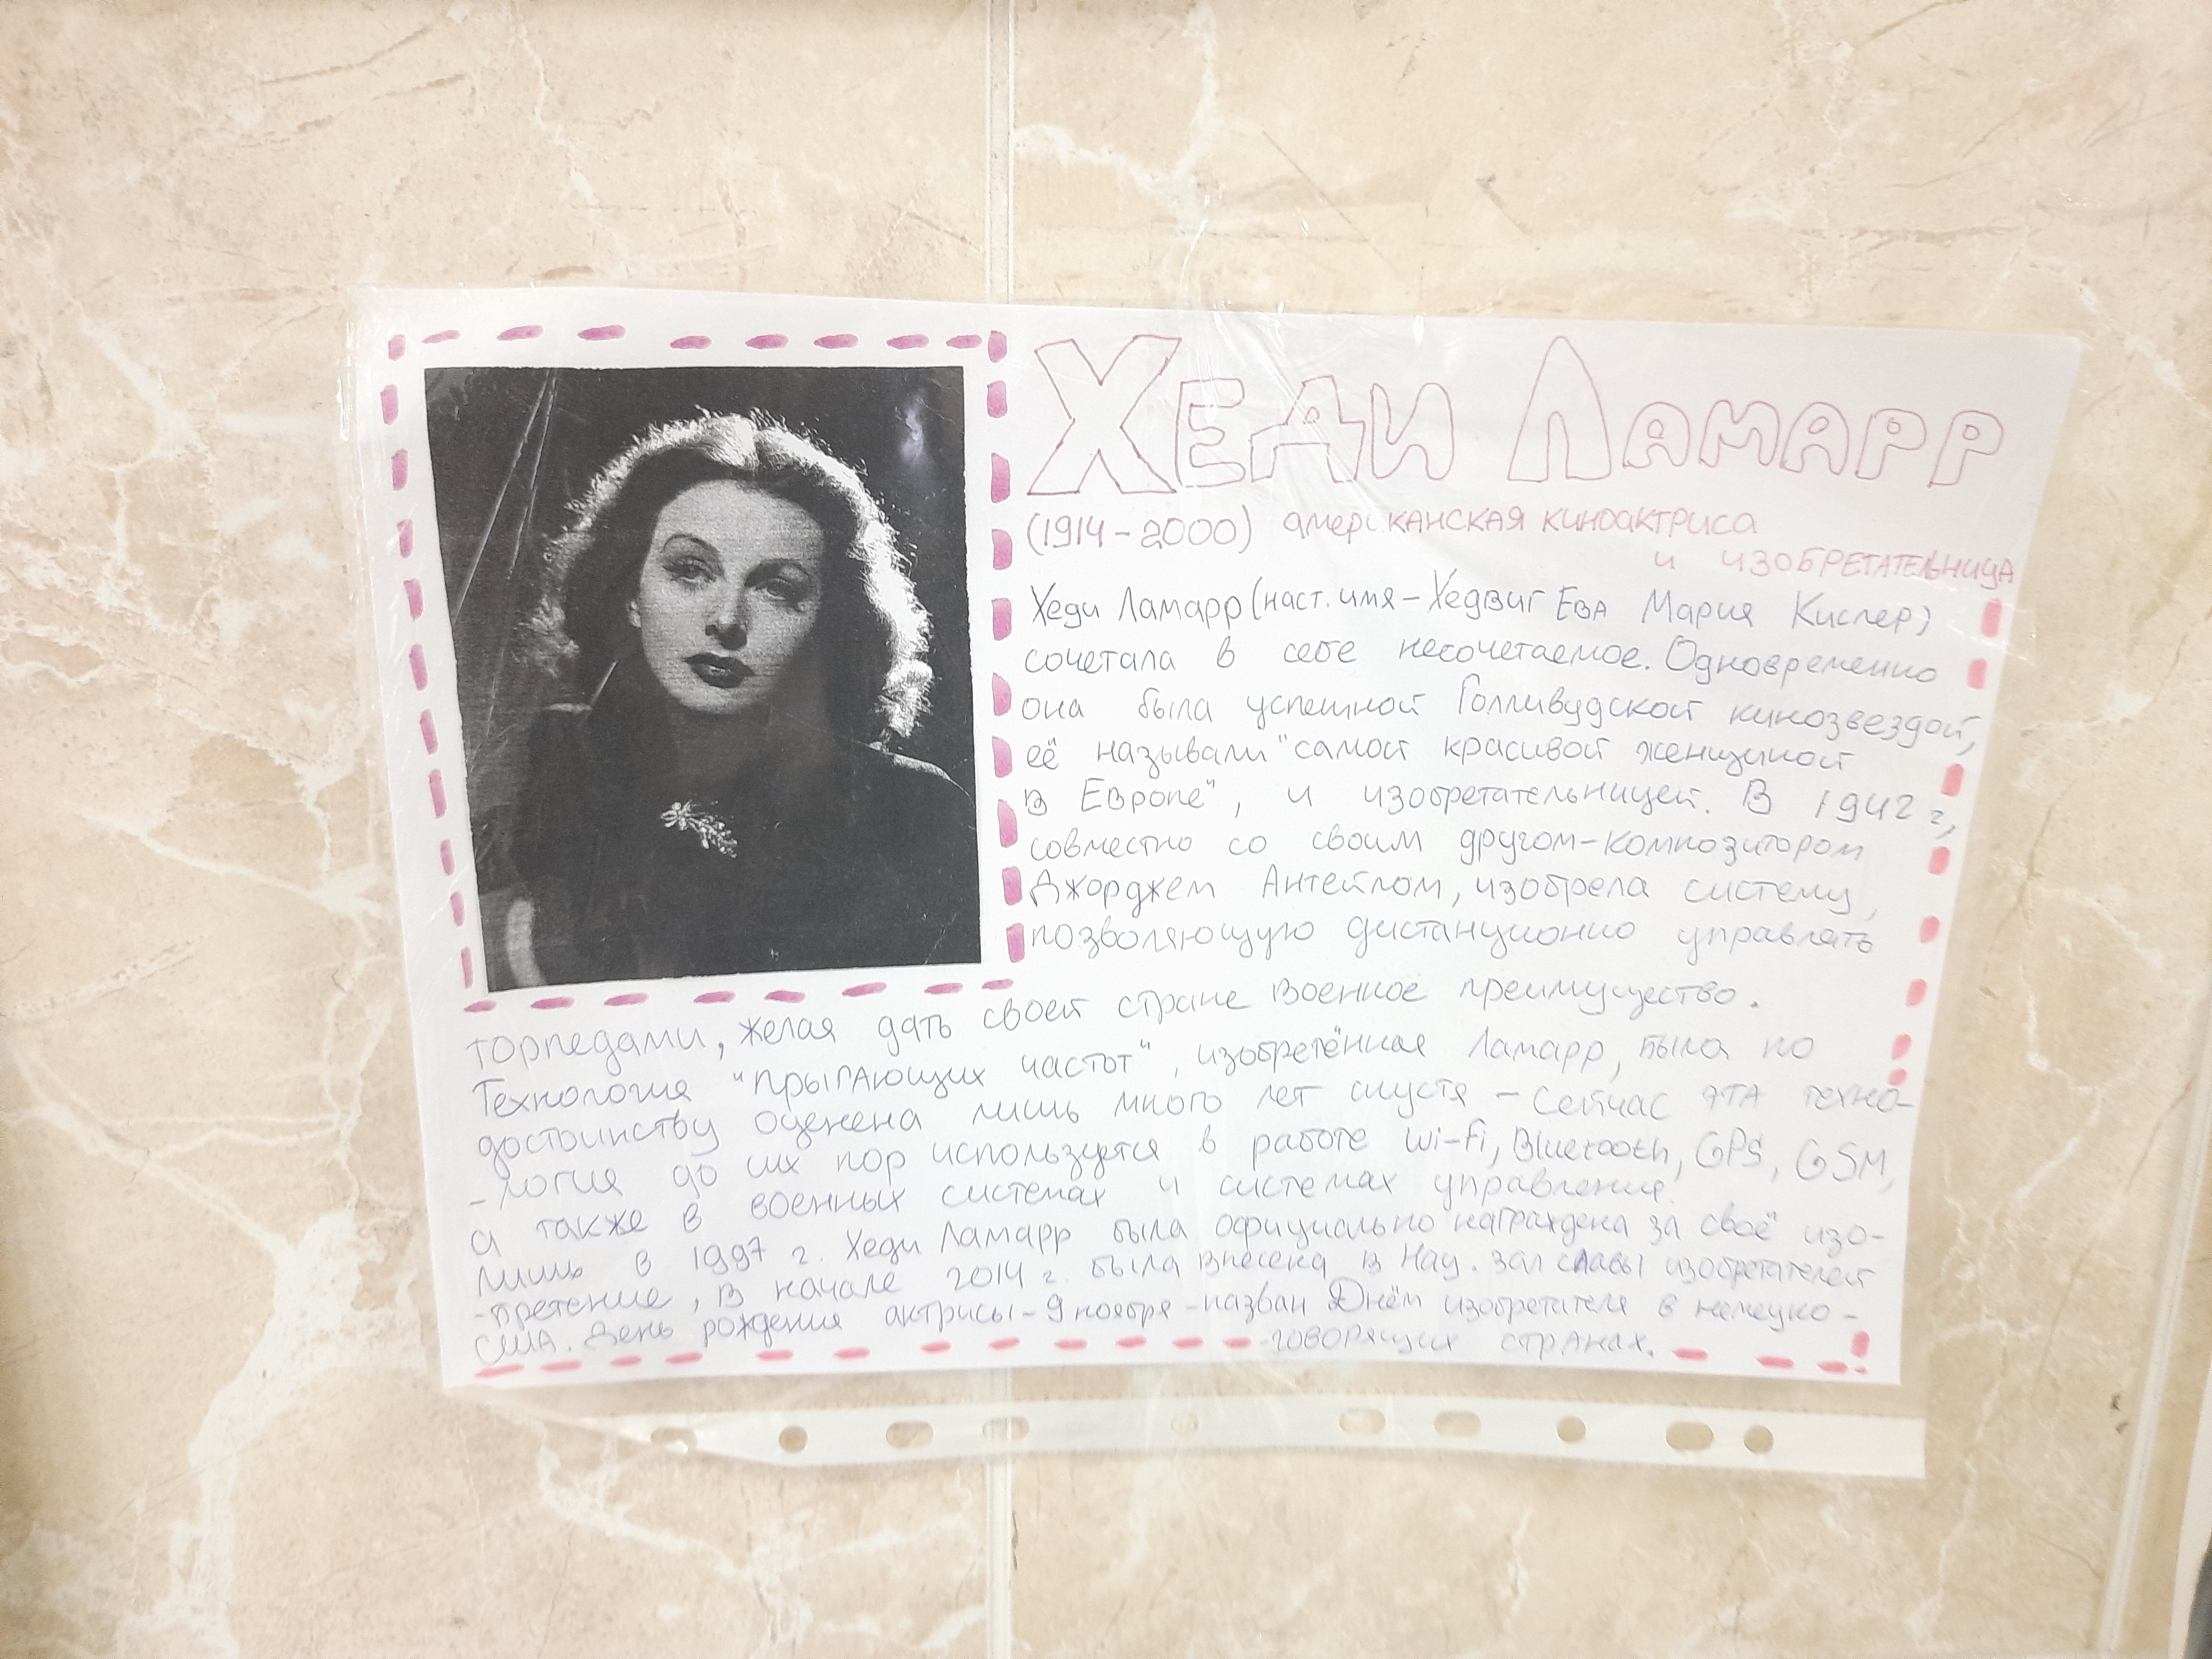 Хеди Ламарр
(1914-2000) американская киноактриса
и изобретательница
Хеди Ламарр (наст. имя - Хедвиг Ева Мария Кислер)
сочетала в себе несочетаемое. Одновременно
она была успешной Голливудской кинозвездой,
её называли "самой красивой женщиной
в Европе", и изобретательницей. В 1942 г,
совместно со своим другом-композитором
Джорджем Антейлом, изобрела систему,
позволяющую дистанционно управлять
торпедами, желая дать своей стране военное преимущество.
Технология "прыгающих частот", изобретённая Ламарр, была по
достоинству оценена лишь много лет спустя - сейчас эта техно-
-логия до сих пор используется в работе Wi-Fi, Bluetooth, GPS, GSM,
а также в военных системах и системах управления.
Лишь в 1997 г. Хеди Ламарр была официально награждена за своё изо-
-бретение, в начале 2014 г. была внесена в Нац. зал славы изобретателей
США. День рождения актрисы - 9 ноября - назван Днём изобретателя в немецко-
-говорящих странах.